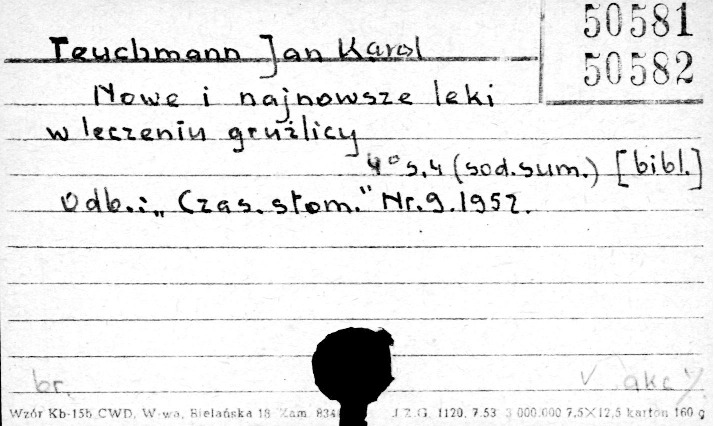 50581
50582
Teuchmann Jan Karol
Nowe i najnowsze leki
w leczeniu gruźlicy
4° s.4 (sod.sum.) [bibl.]
Odb.: „Czas. stom." Nr.9.1952.
br. v akc
Wzór Kb-15b CWD, W-wa, Bielańska 18 Zam. J.Z.G. 1120. 7.53 3 000.000 7,5×12,5 karton 160 g